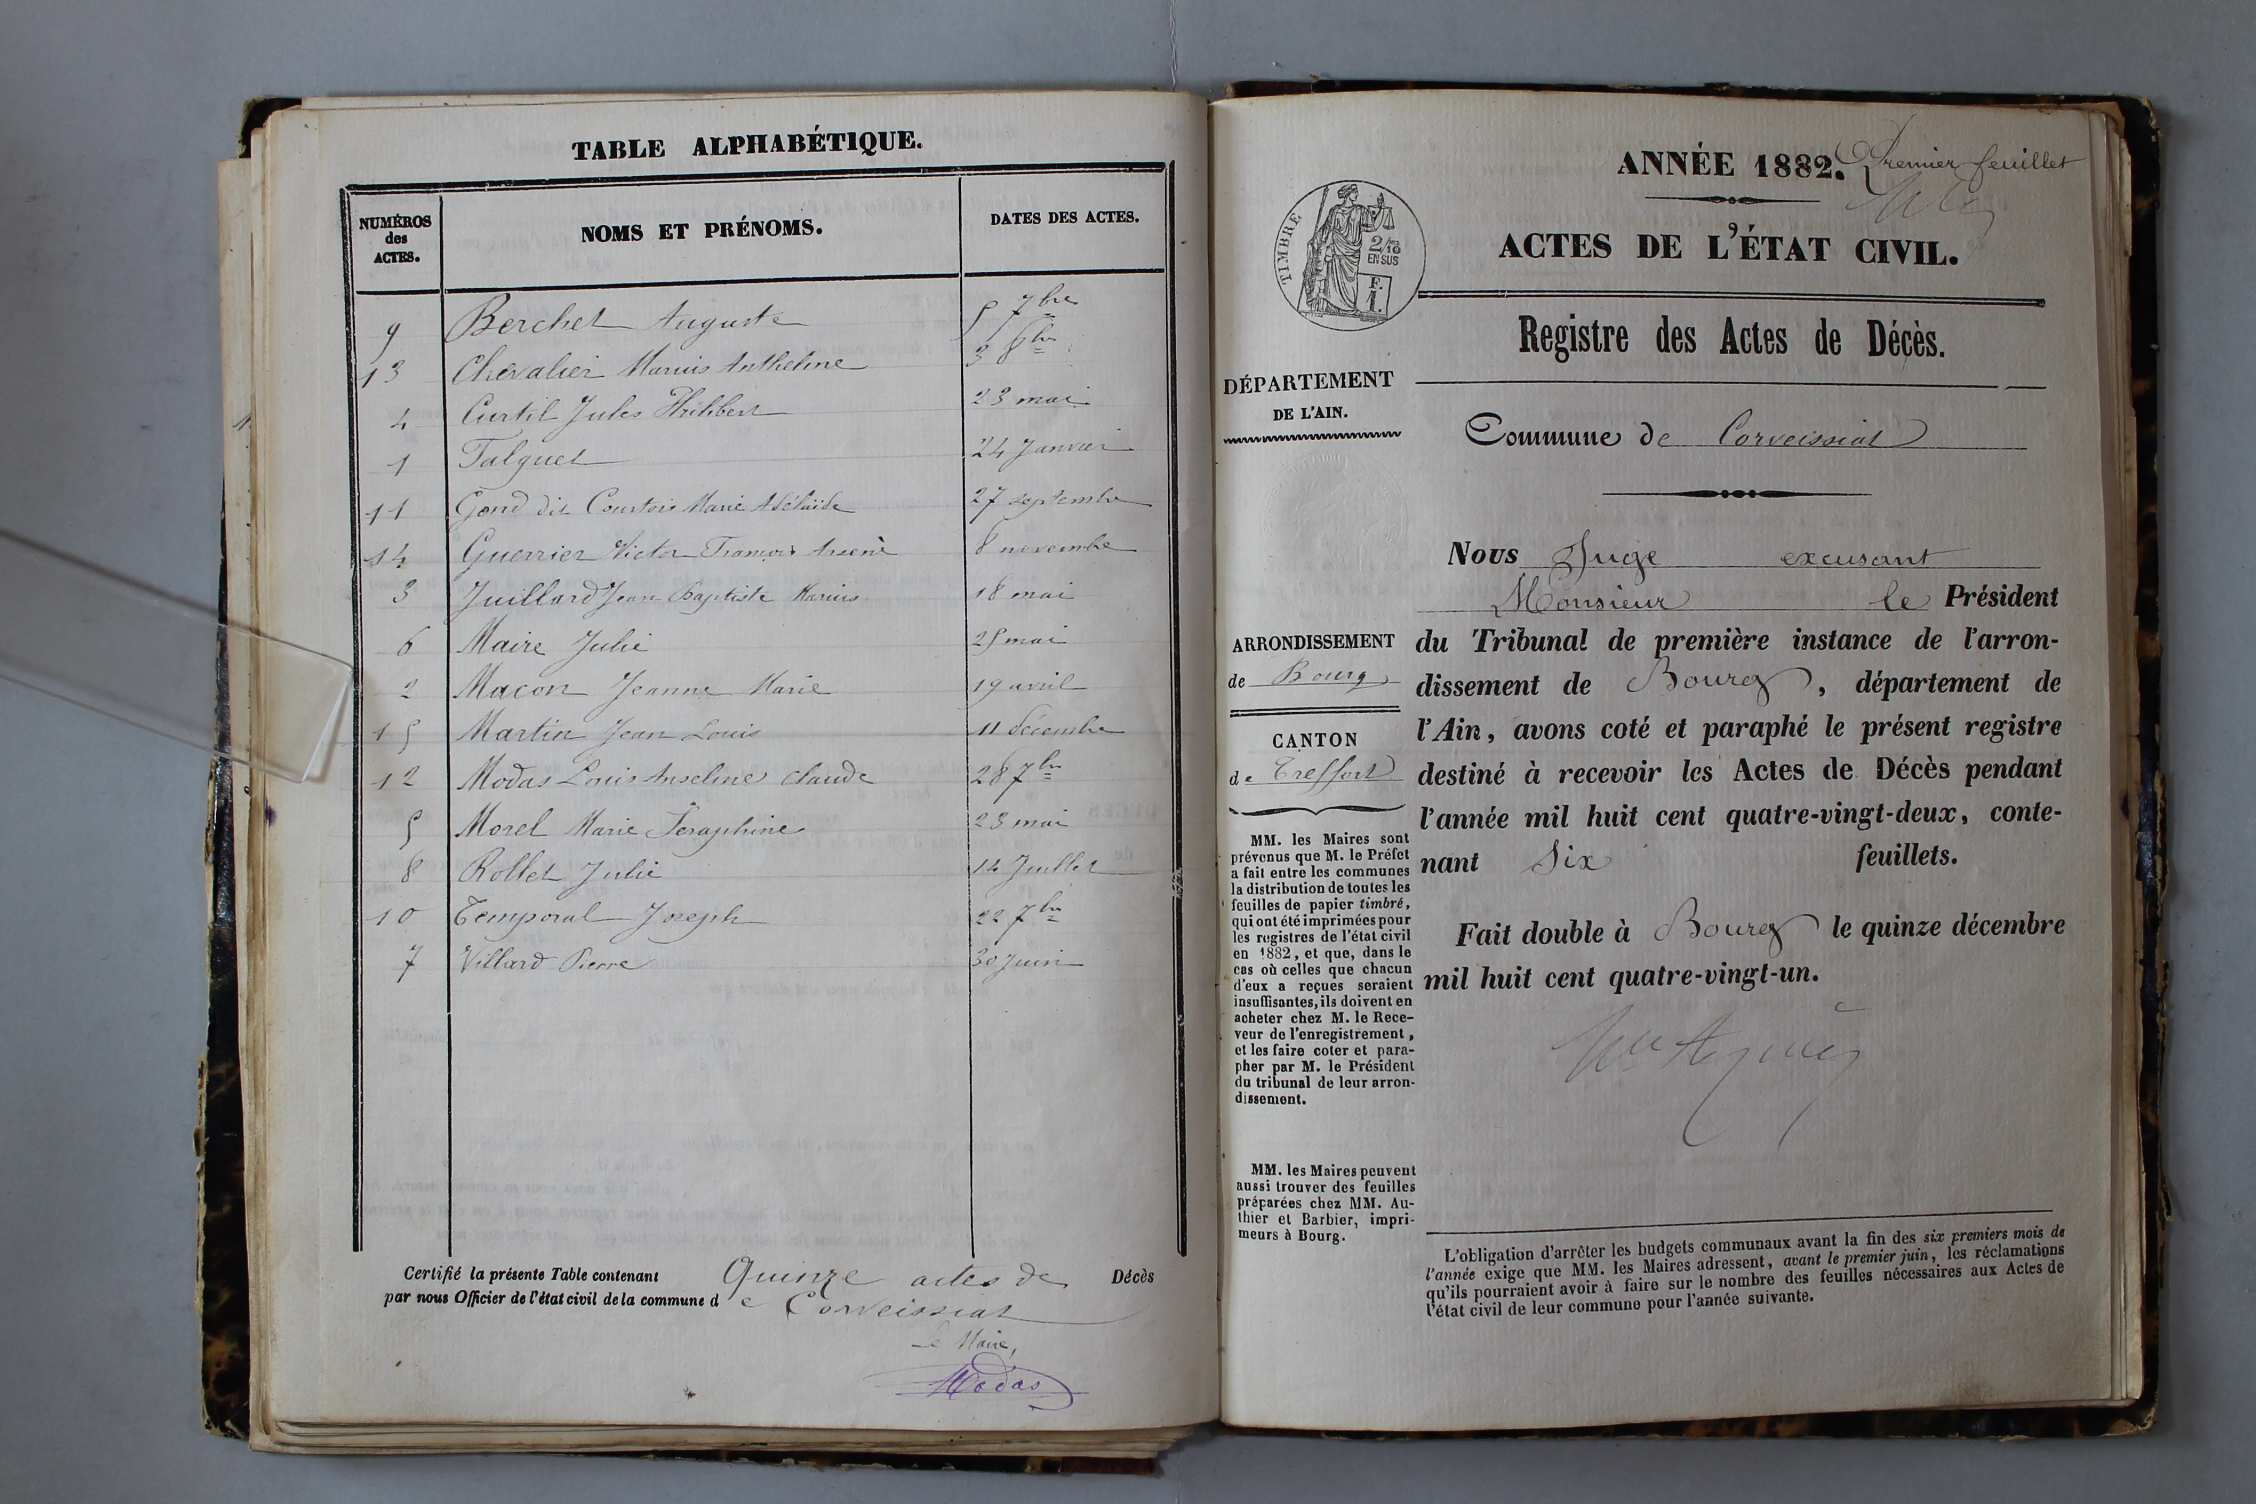 TABLE ALPHABÉTIQUE.
NUMÉROS des ACTES. NOMS ET PRÉNOMS. DATES DES ACTES.
9 Berchet Auguste 5 7bre
13 Chevalier Marius Anthelme 3 8bre
4 Curtil Jules Philibert 23 mai
1 Falguet 24 Janvier
11 Gond dit Courtois Marie Adélaïde 27 septembre
14 Guerrier Victor François Arsène 8 novembre
3 Juillard Jean Baptiste Marius 18 mai
6 Maire Julie 25 mai
2 Macon Jeanne Marie 19 avril
15 Martin Jean Louis 11 décembre
12 Modas Louis Anselme Claude 28 7bre
5 Morel Marie Séraphine 23 mai
8 Rollet Julie 14 Juillet
10 Temporal Joseph 22 7bre
7 Villard Pierre 30 Juin
Certifié la présente Table contenant Quinze actes de Décès
par nous Officier de l'état civil de la commune de Corveissiat
Le Maire,
Modas
ANNÉE 1882. Premier feuillet
ACTES DE L'ÉTAT CIVIL.
TIMBRE
2/10
EN SUS
F.
1.
Registre des Actes de Décès.
DÉPARTEMENT
DE L'AIN.
Commune de Corveissiat
Nous Juge excusant
Monsieur le Président
du Tribunal de première instance de l'arron-
dissement de Bourg, département de
l'Ain, avons coté et paraphé le présent registre
destiné à recevoir les Actes de Décès pendant
l'année mil huit cent quatre-vingt-deux, conte-
nant Six feuillets.
Fait double à Bourg le quinze décembre
mil huit cent quatre-vingt-un.
ARRONDISSEMENT
de Bourg
CANTON
de Treffort
MM. les Maires sont
prévenus que M. le Préfet
a fait entre les communes
la distribution de toutes les
feuilles de papier timbré,
qui ont été imprimées pour
les registres de l'état civil
en 1882, et que, dans le
cas où celles que chacun
d'eux a reçues seraient
insuffisantes, ils doivent en
acheter chez M. le Rece-
veur de l'enregistrement,
et les faire coter et para-
pher par M. le Président
du tribunal de leur arron-
dissement.
MM. les Maires peuvent
aussi trouver des feuilles
préparées chez MM. Au-
thier et Barbier, impri-
meurs à Bourg.
L'obligation d'arrêter les budgets communaux avant la fin des six premiers mois de
l'année exige que MM. les Maires adressent, avant le premier juin, les réclamations
qu'ils pourraient avoir à faire sur le nombre des feuilles nécessaires aux Actes de
l'état civil de leur commune pour l'année suivante.